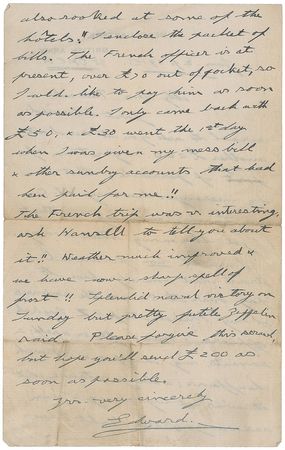 also rooked at some of the
hotels!! I enclose the packet of
bills. The French officer is at
present, over £70 out of pocket, so
I wld. like to pay him as soon
as possible. I only came back with
£50, & £30 went the 1st day
when I was given my mess bill
& other sundry accounts that had
been paid for me!!
The French trip was v. interesting,
ask to tell you about
it!! Weather much improved &
we have now a sharp spell of
frost!! Splendid naval victory on
Sunday but pretty futile Zeppelin
raid. Please forgive this scrawl,
but hope you'll send £200 as
soon as possible.
Yrs. very sincerely
Edward.